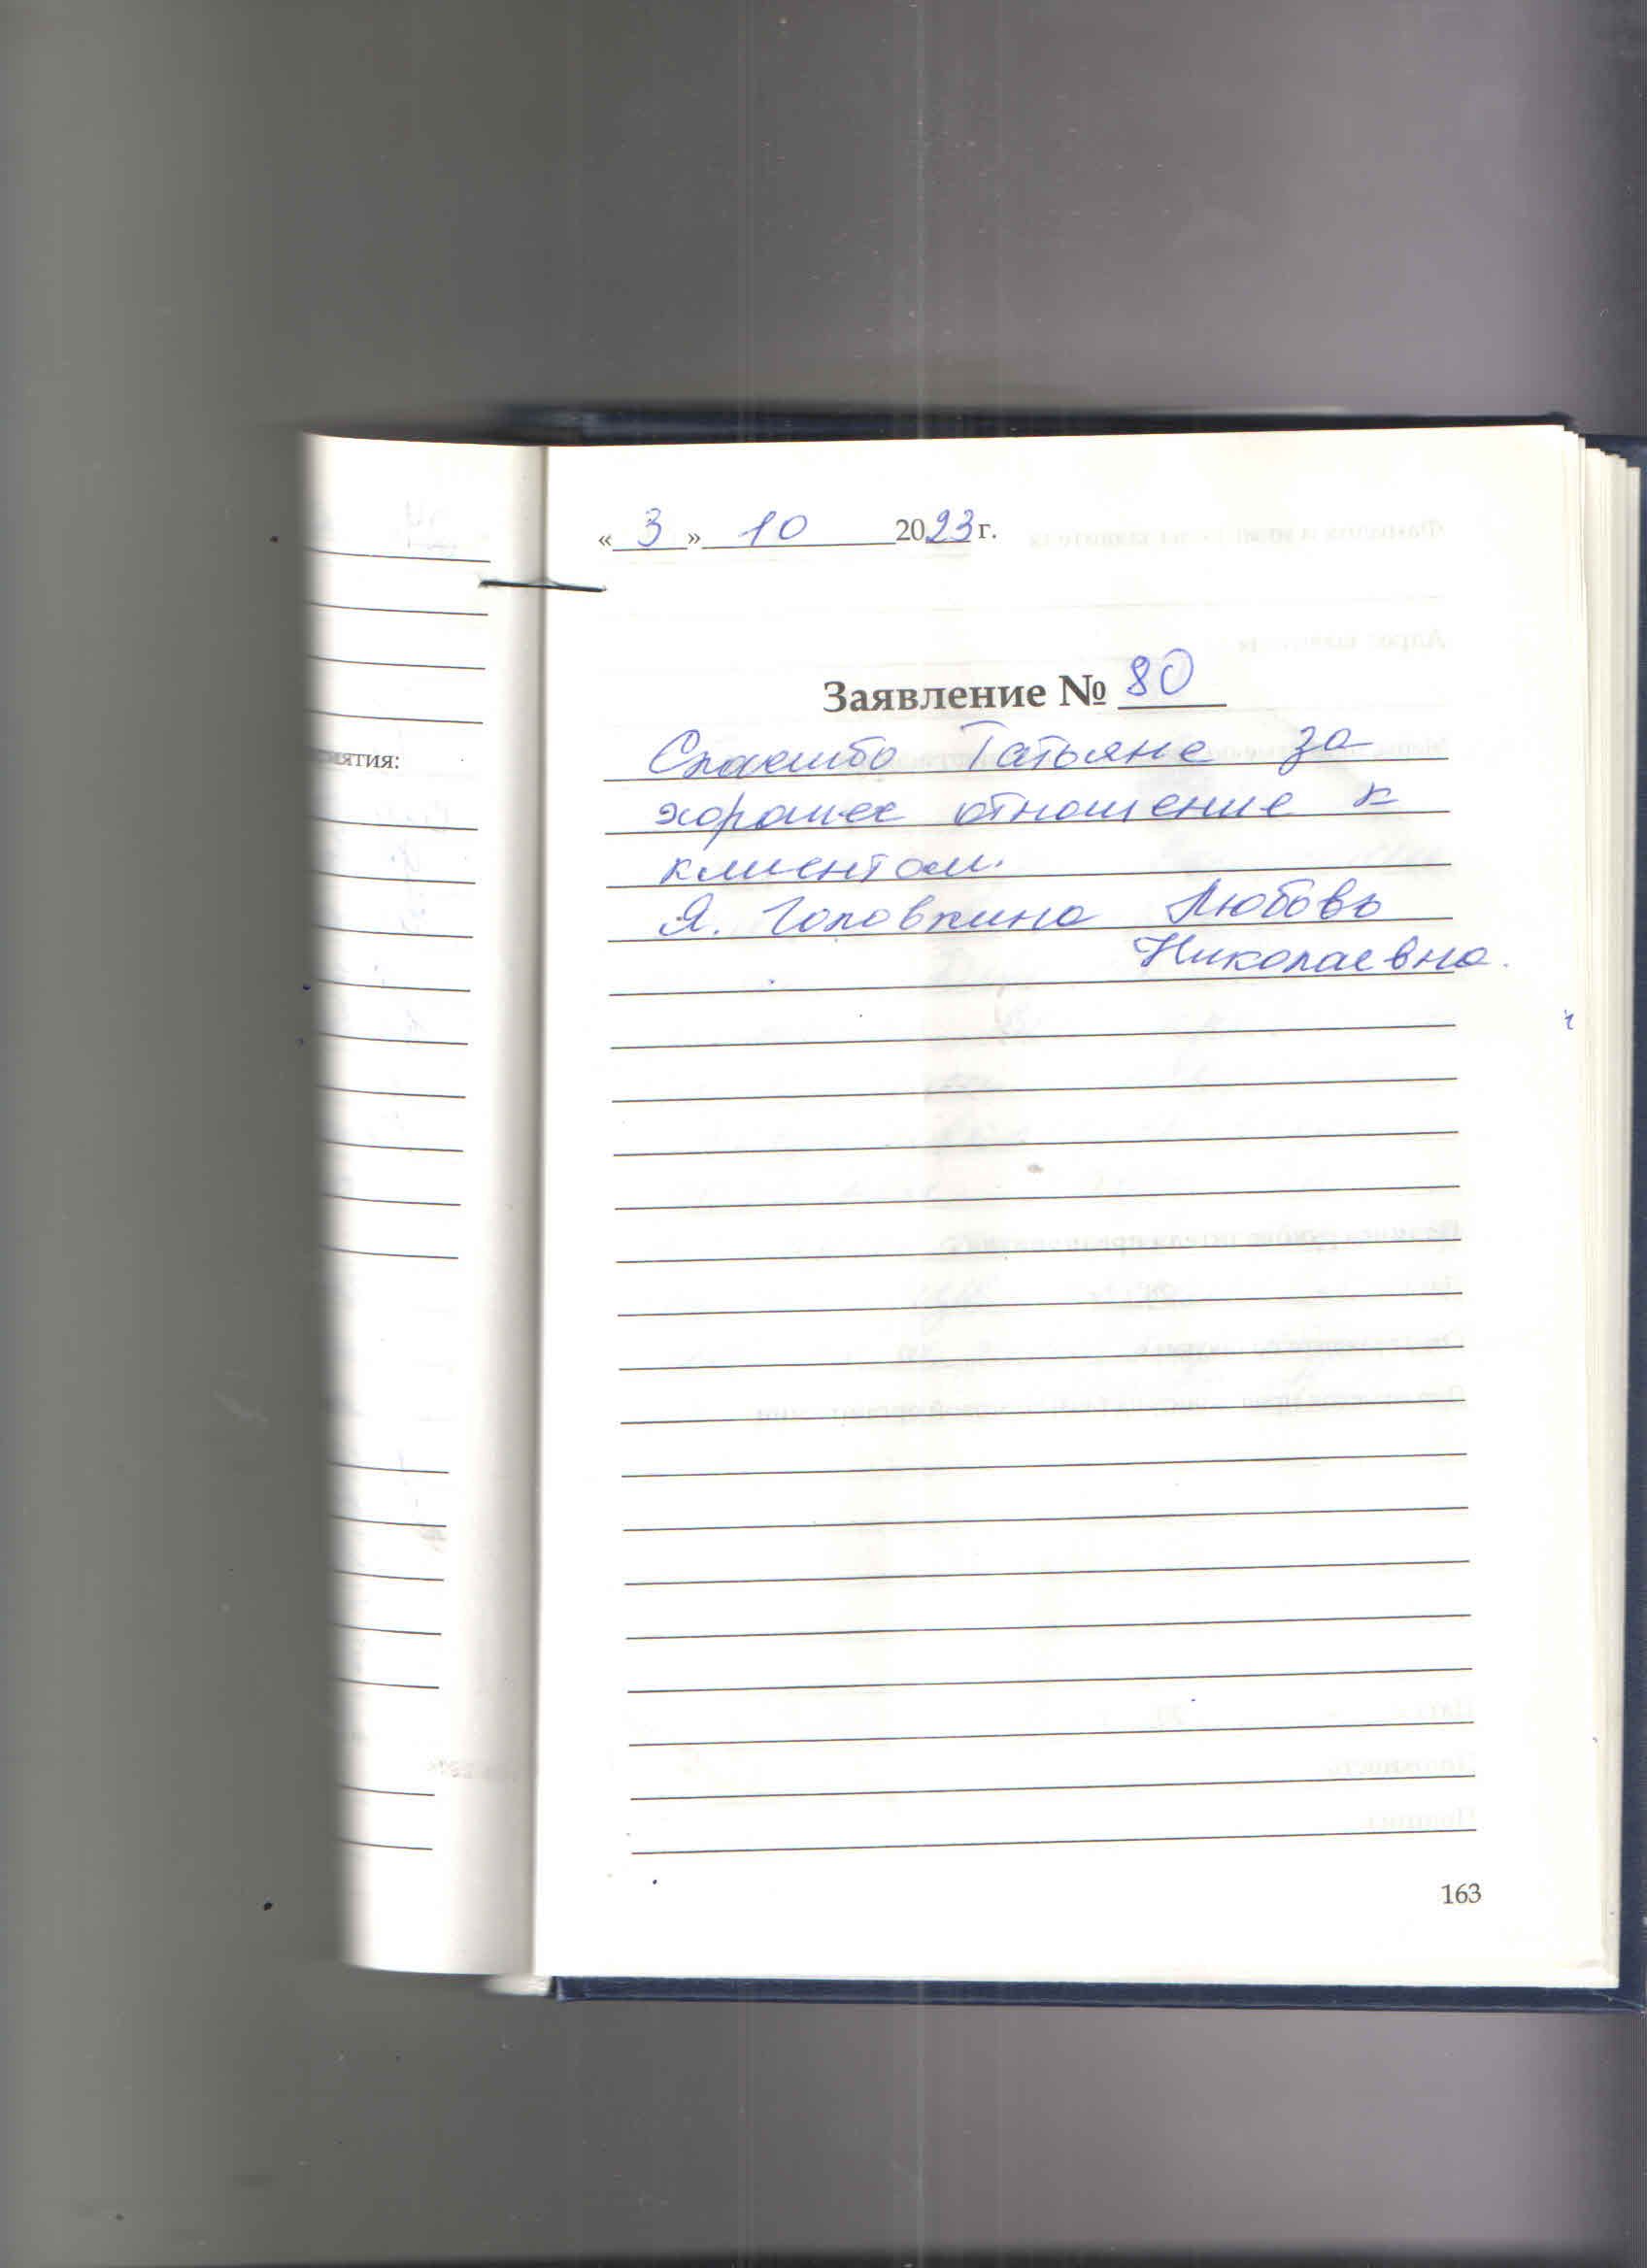 «3» 10 2023 г.
Заявление № 80
Спасибо Татьяне за
хорошее отношение к
клиентам.
Я. Головкина Любовь
Николаевна.
163